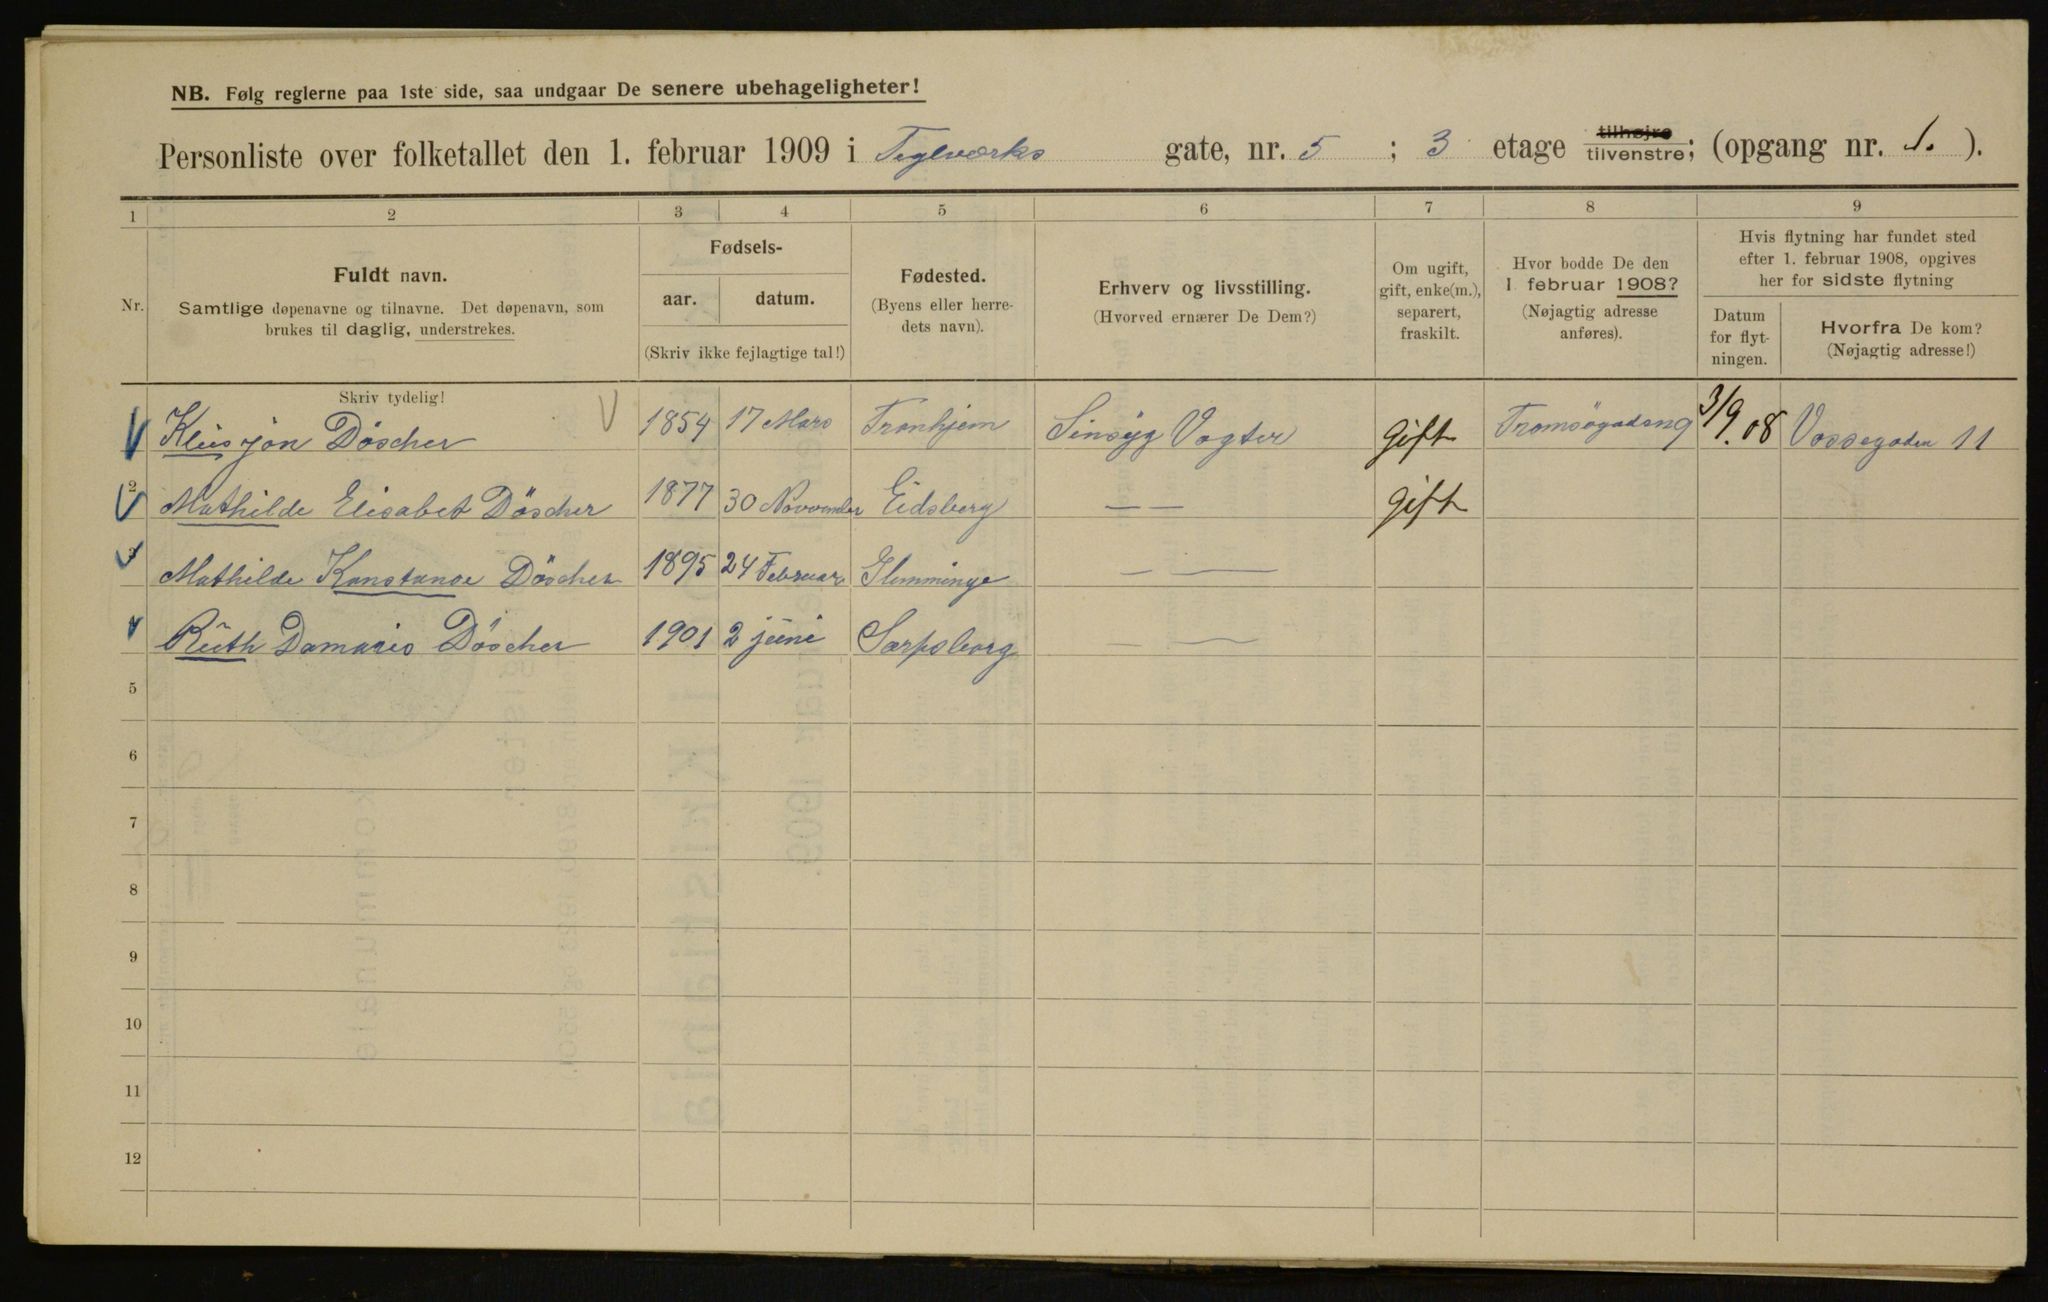 NB. Følg reglerne paa 1ste side, saa undgaar De senere ubehageligheter!
Personliste over folketallet den 1. februar 1909 i Teglværks gate, nr. 5 ; 3 etage tilhøjre tilvenstre; (opgang nr. 1. ).
1 2 3 4 5 6 7 8 9
Nr.
Fuldt navn.
Samtlige døpenavne og tilnavne. Det døpenavn, som
brukes til daglig, understrekes.
Fødsels-
aar. datum.
(Skriv ikke fejlagtige tal!)
Fødested.
(Byens eller herre-
dets navn).
Erhverv og livsstilling.
(Hvorved ernærer De Dem?)
Om ugift,
gift, enke(m.),
separert,
fraskilt.
Hvor bodde De den
1 februar 1908?
(Nøjagtig adresse
anføres).
Hvis flytning har fundet sted
efter 1. februar 1908, opgives
her for sidste flytning
Datum
for flyt-
ningen.
Hvorfra De kom?
(Nøjagtig adresse!)
Skriv tydelig!
Döscher 1854 17 Mars Tronhjem Sinsyg Vogter gift Tromsögadeng 3/9.08 Vossegaden 11
2 Mathilde Elisabet Döscher 1877 30 November Eidsberg — — gift
3 Mathilde Konstanse Döscher 1895 24 Februar Glemminge — —
Ruth Damaris Döscher 1901 2 juni Sarpsborg — —
5
6
7
8
9
10
11
12